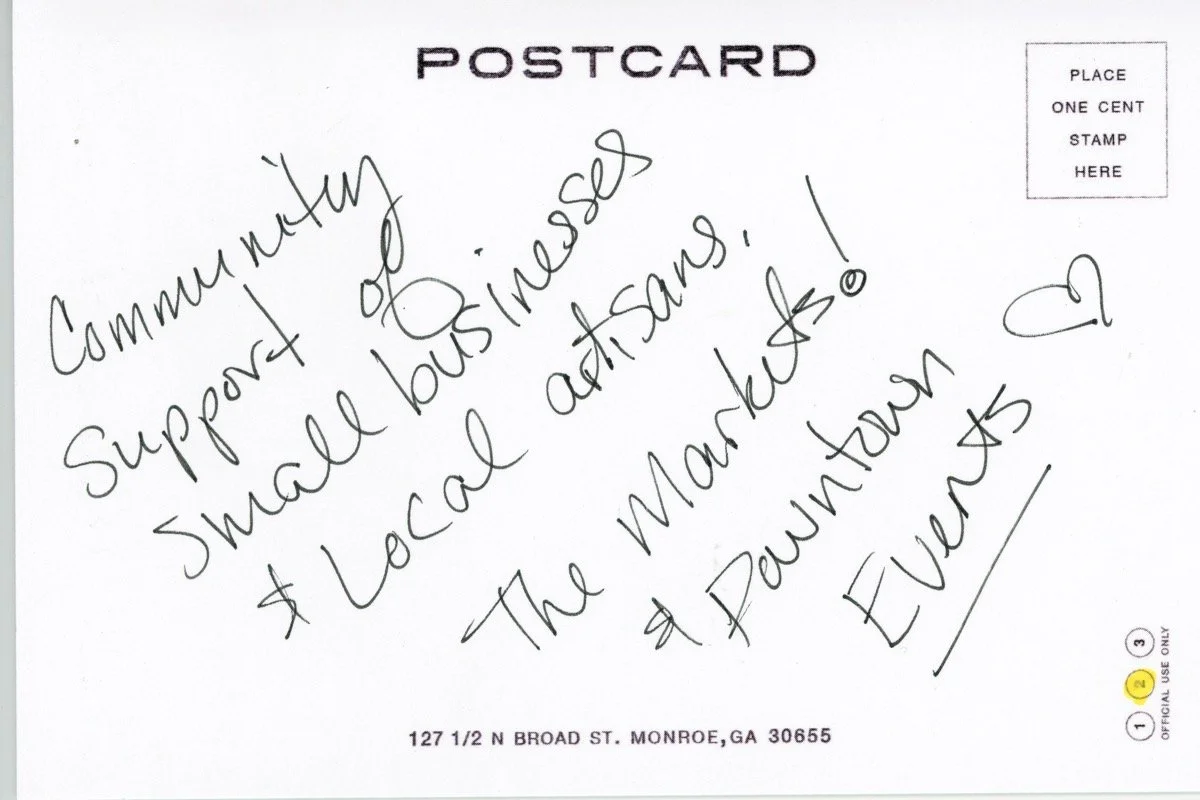 POSTCARD
PLACE
ONE CENT
STAMP
HERE
Community
Support of
Small businesses
& Local artisans.
The Markets!
& Downtown
Events
127 1/2 N BROAD ST. MONROE, GA 30655
1 2 3
OFFICIAL USE ONLY